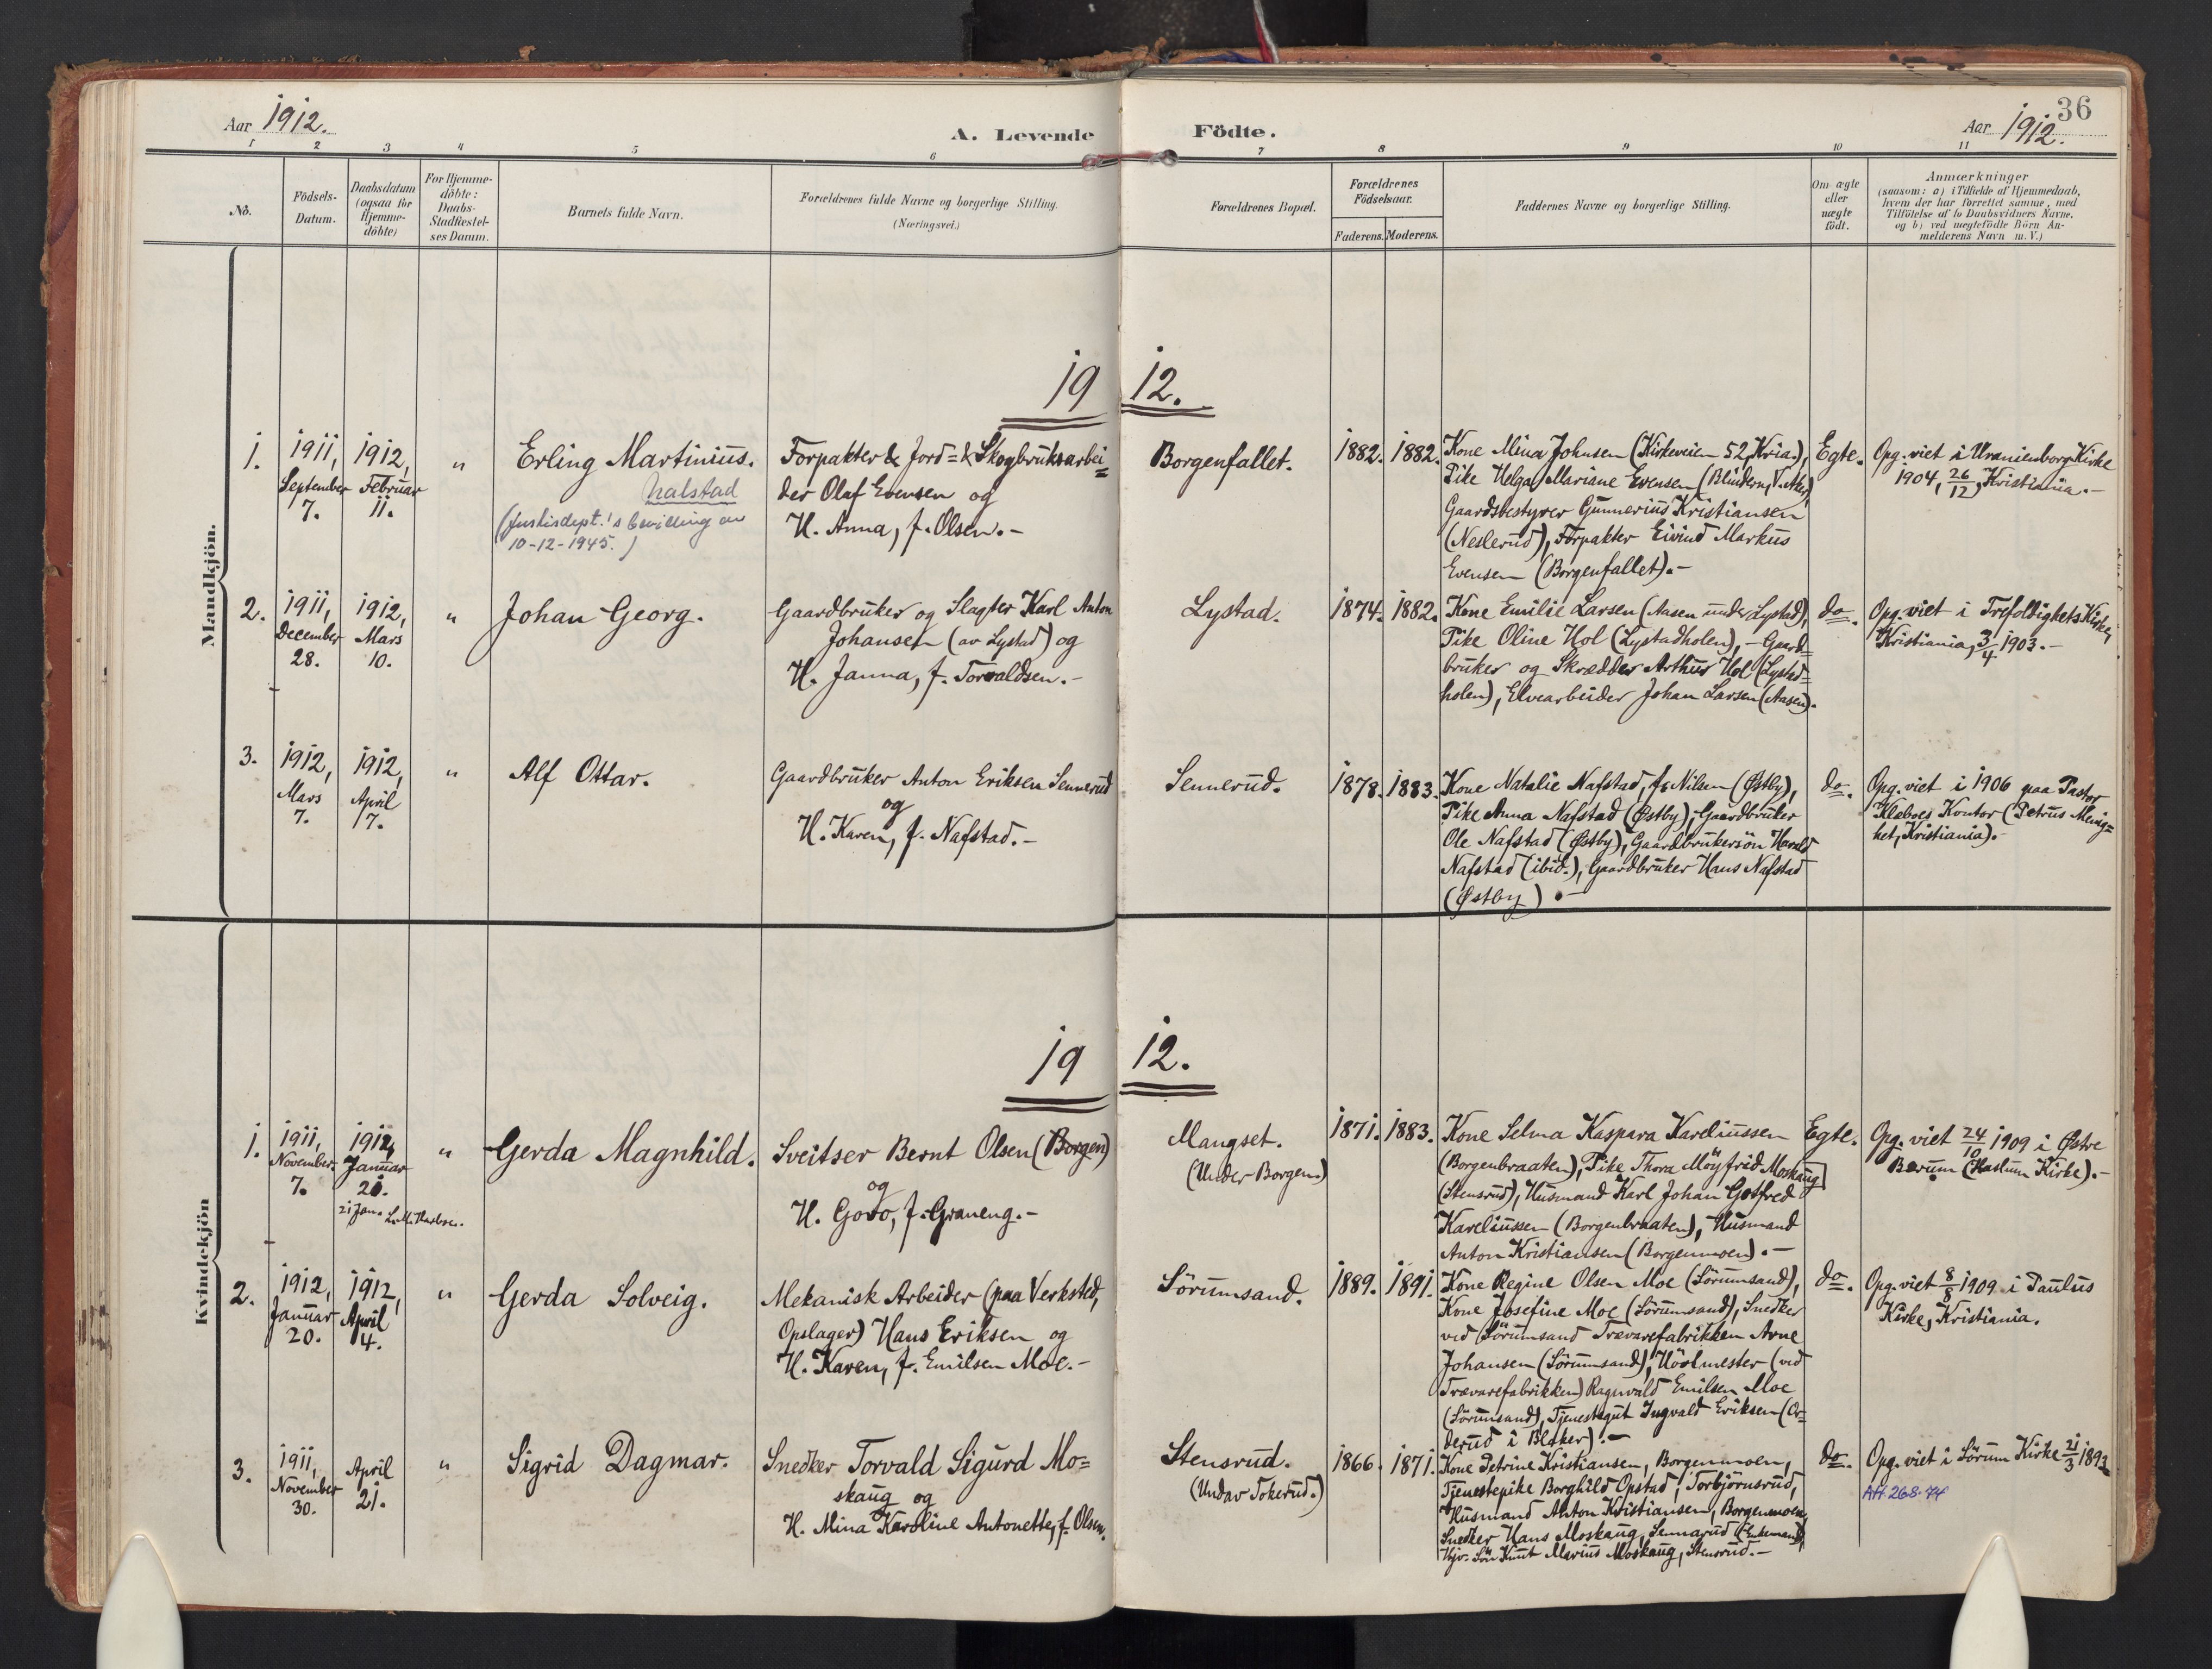 Aar 1912.
A. Levende Födte.
36
Aar 1912.
1 2 3 4 5 6 7 8 9 10 11
No.
Födsels-
Datum.
Daabsdatum
(ogsaa for
Hjemme-
döbte)
For Hjemme-
döbte:
Daabs-
Stadfæstel-
ses Datum.
Barnets fulde Navn.
Forældrenes fulde Navne og borgerlige Stilling.
(Næringsvei.)
Forældrenes Bopæl.
Forældrenes
Födselsaar.
Faderens. Moderens.
Faddernes Navne og borgerlige Stilling.
Om ægte
eller
uægte
födt.
Anmærkninger
(saasom: a) i Tilfælde af Hjemmedaab,
hvem der har forrettet samme, med
Tilföielse af to Daabsvidners Navne,
og b) ved uægtefödte Börn An-
melderens Navn m. V.)
Mandkjön.
1912.
1.
1911,
September
7.
1912,
Februar
11.
"
Erling Martinius.
Nalstad
(Justisdept.'s bevilling av
10-12-1945.)
Forpakter & Jord= & Skogbruksarbei=
der Olaf Evensen og
H. Anna, f. Olsen.-
Borgenfallet.
1882. 1882.
Kone Mina Johnsen (Kirkeveien 52, Kria),
Pike Helga Mariane Evensen (Blindern, V. Aker)
Gaardsbestyrer Gunnerius Kristiansen
(Neslerud), Forpakter Eivind Markus
Evensen (Borgenfallet).-
Egte.
Opg. viet i Uranienborg Kirke
1904, 26/12, Kristiania.-
2.
1911,
December
28.
1912,
Mars
10.
"
Johan Georg.
Gaardbruker og Slagter Karl Anton
Johansen (av Lystad) og
H. Janna, f. Torvaldsen.-
Lystad.
1874. 1882.
Kone Emilie Larsen (Aasen under Lystad),
Pike Oline Hol (Lystadholen), - Gaard=
bruker og Skrædder Arthur Hol (Lystad=
holen), Elvearbeider Johan Larsen (Aasen).
do.
Opg. viet i Trefoldighets Kirke,
Kristiania, 3/4 1903.-
3.
1912,
Mars
7.
1912,
April
17.
"
Alf Ottar.
Gaardbruker Anton Eriksen Sennerud
og
H. Karen, f. Nafstad.-
Sennerud.
1878. 1883.
Kone Natalie Nafstad, f. Nilsen (Østby),
Pike Anna Nafstad (Østby), Gaardbruker
Ole Nafstad (Østby), Gaardbrukersön Harald
Nafstad (ibid.), Gaardbruker Hans Nafstad
(Østby).-
do.
Opg. viet i 1906 paa Pastor
Klæboes Kontor (Petrus Menig=
het, Kristiania).-
Kvindekjön
1912.
1.
1911,
November
7.
1912,
Januar
21.
21 Jan.
"
Gerda Magnhild.
Sveitser Bernt Olsen (Borgen)
og
H. Goro, f. Graneng.-
Mangset.
(Under Borgen)
1871. 1883.
Kone Selma Kaspara Kareliussen
(Borgenbraaten), Pike Thora Möyfrid Moskaug
(Stensrud), Husmand Karl Johan Gotfred
Kareliussen (Borgenbraaten), Husmand
Anton Kristiansen (Borgenmoen).-
Egte.
Opg. viet 24/10 1909 i Østre
Bærum (Haslum Kirke).-
2.
1912,
Januar
20.
1912,
April
4.
"
Gerda Solveig.
Mekanisk Arbeider (paa Verksted,
Opslager) Hans Eriksen og
H. Karen, f. Emilsen Moe.-
Sörumsand.
1889. 1891.
Kone Regine Olsen Moe (Sörumsand),
Kone Josefine Moe (Sörumsand), Snedker
ved Sörumsand Trævarefabrikken Arne
Johansen (Sörumsand), Hövlmester (ved
Trævarefabrikken) Ragnvald Emilsen Moe
(Sörumsand), Tjenestegut Ingvald Eriksen (Or=
derud i Blaker).-
do.
Opg. viet 8/8 1909 i Paulus
Kirke, Kristiania.
3.
1911,
November
30.
April
21.
"
Sigrid Dagmar.
Snedker Torvald Sigurd Mo=
skaug og
H. Mina Karoline Antonette, f. Olsen.
Stensrud.
(Undav Tokerud.)
1866. 1871.
Kone Petrine Kristiansen, Borgenmoen,
Tjenestepike Borghild Opstad, Torbjörnsrud,
Husmand Anton Kristiansen, Borgenmoen,
Snedker Hans Moskaug, Sennarud (Enkemand),
Hjv. Sön Knut Marius Moskaug, Stensrud.-
do.
Opg. viet i Sörum Kirke 21/3 1893
Att. 26.8.44